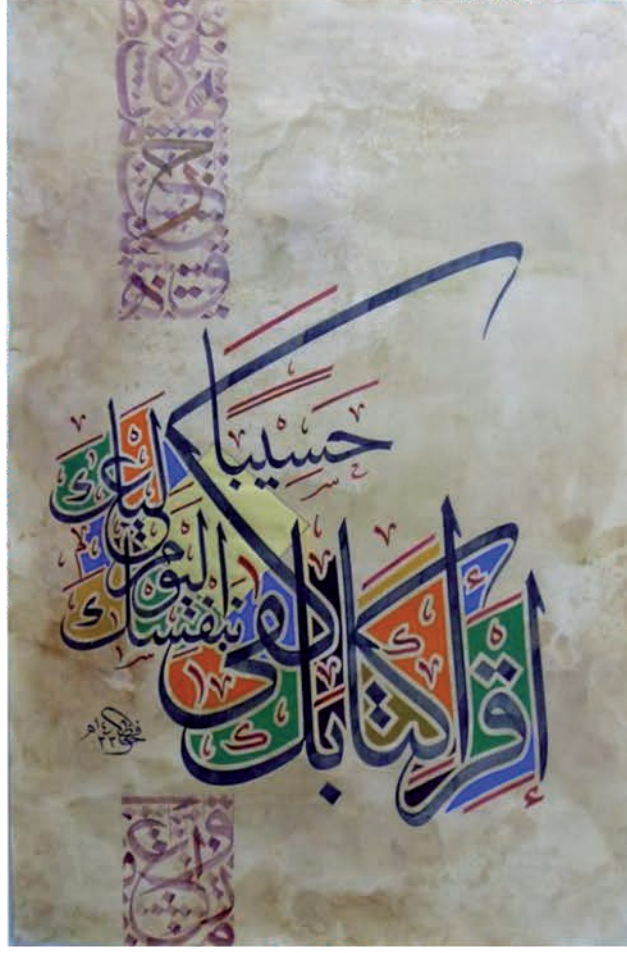 إقرأ كتابك كفى
بنفسك اليوم عليك
حسيبًا